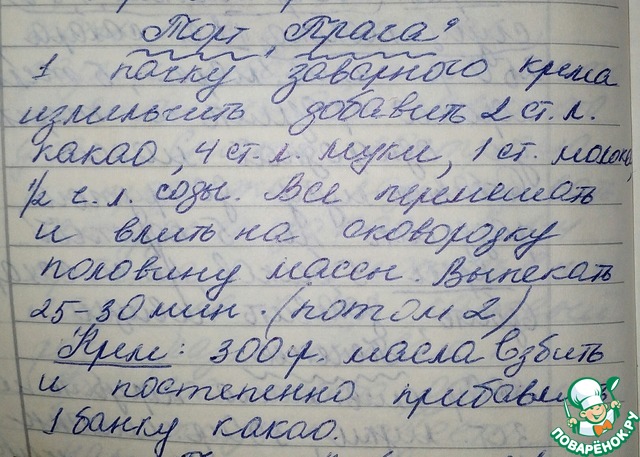 Торт „Прага"
1 пачку заварного крема
измельчить добавить 2 ст. л.
какао, 4 ст. л. муки, 1 ст. молока,
1/2 ч. л. соды. Все перемешать
и влить на сковородку
половину массы. Выпекать
25-30 мин. (потом 2)
Крем: 300 гр. масла взбить
и постепенно прибавляя
1 банку какао.
ПОВАРЁНОК.РУ